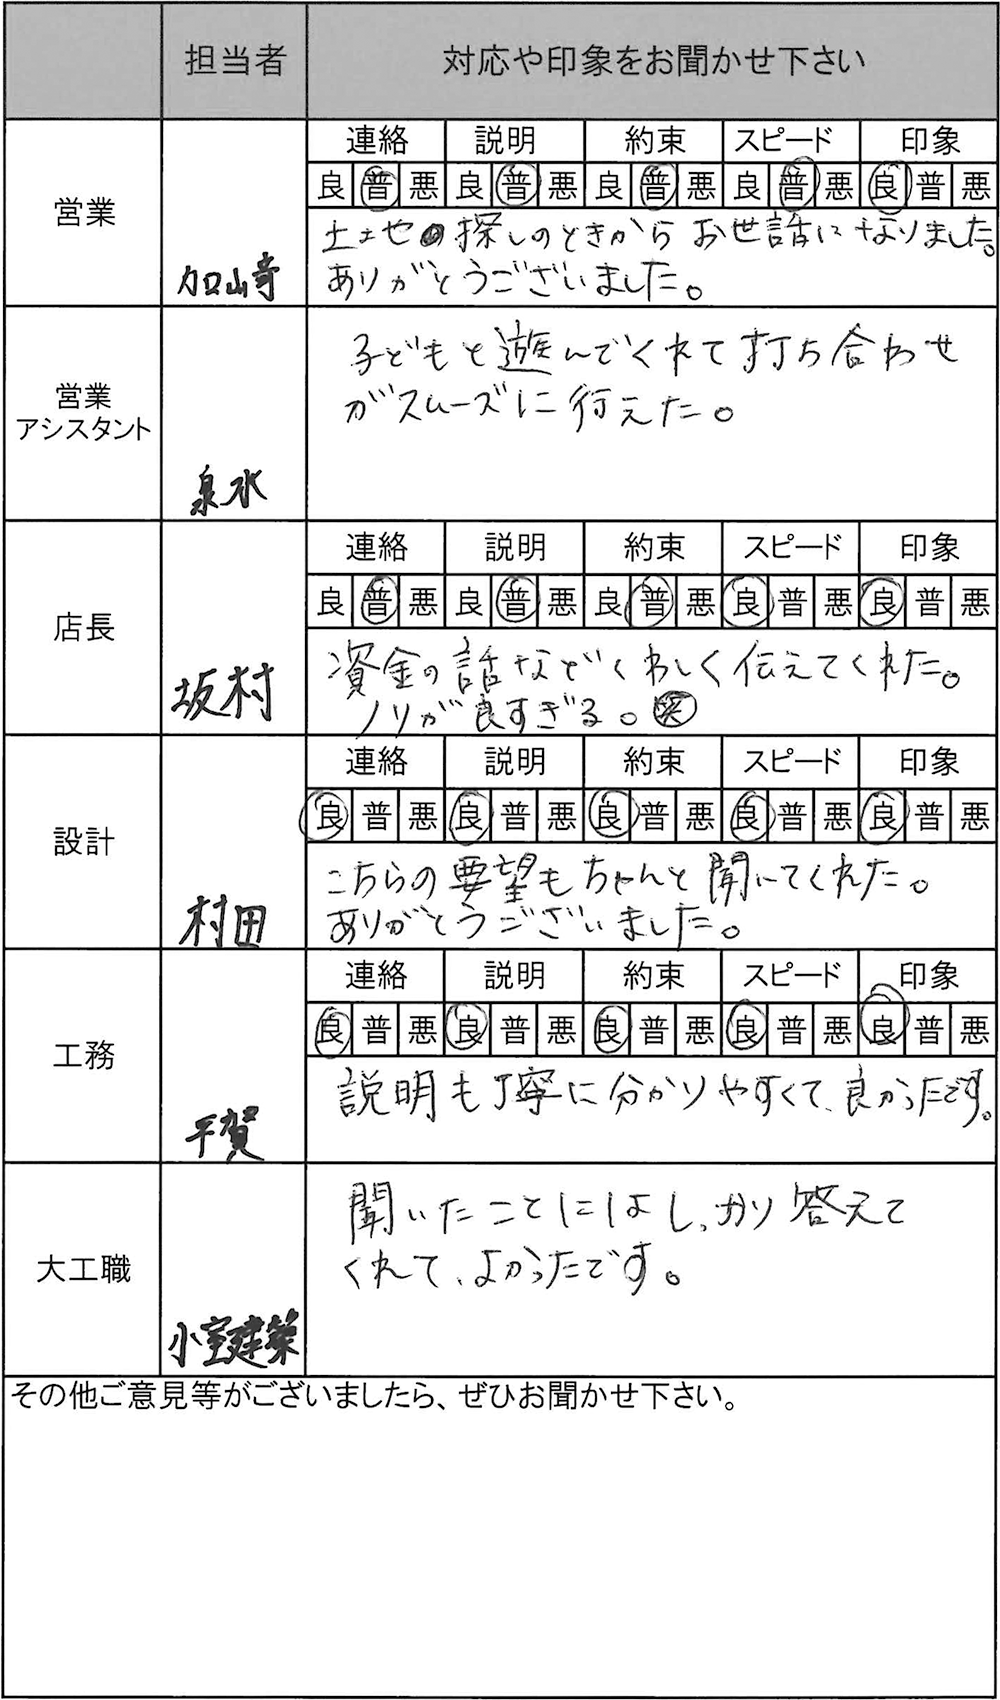 担当者 対応や印象をお聞かせ下さい
連絡 説明 約束 スピード 印象
良 普 悪 良 普 悪 良 普 悪 良 普 悪 良 普 悪
営業
土地探しのときからお世話になりました。
ありがとうございました。
加山寺
子どもと遊んでくれて打ち合わせ
がスムーズに行えた。
営業
アシスタント
泉水
連絡 説明 約束 スピード 印象
良 普 悪 良 普 悪 良 普 悪 良 普 悪 良 普 悪
店長
資金の話などくわしく伝えてくれた。
坂村
ノリが良すぎる。笑
連絡 説明 約束 スピード 印象
良 普 悪 良 普 悪 良 普 悪 良 普 悪 良 普 悪
設計
こちらの要望もちゃんと聞いてくれた。
村田
ありがとうございました。
連絡 説明 約束 スピード 印象
良 普 悪 良 普 悪 良 普 悪 良 普 悪 良 普 悪
工務
説明も丁寧に分かりやすくて、良かったです。
平賀
聞いたことにはしっかり答えて
くれて、よかったです。
大工職
小室建築
その他ご意見等がございましたら、ぜひお聞かせ下さい。